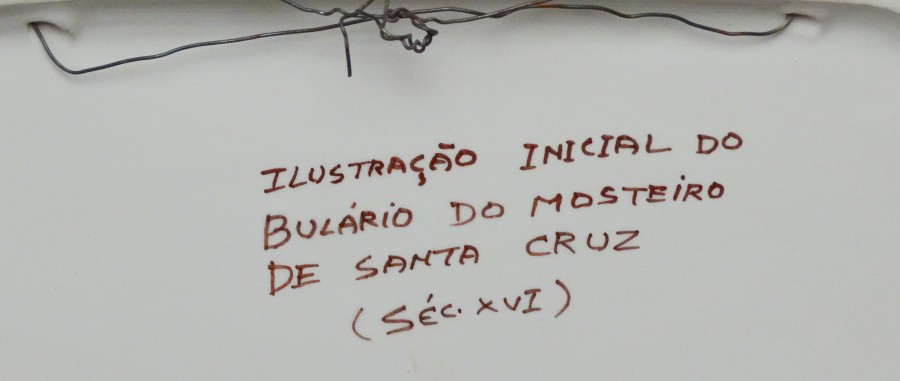 ILUSTRAÇÃO INICIAL DO
BULÁRIO DO MOSTEIRO
DE SANTA CRUZ
(SÉC. XVI)